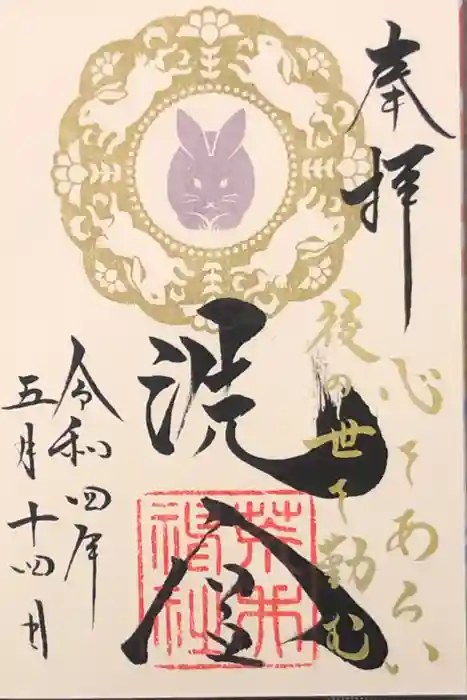 奉拝
心てあらい
後の世て勤む
神社
令和四年
五月十四日